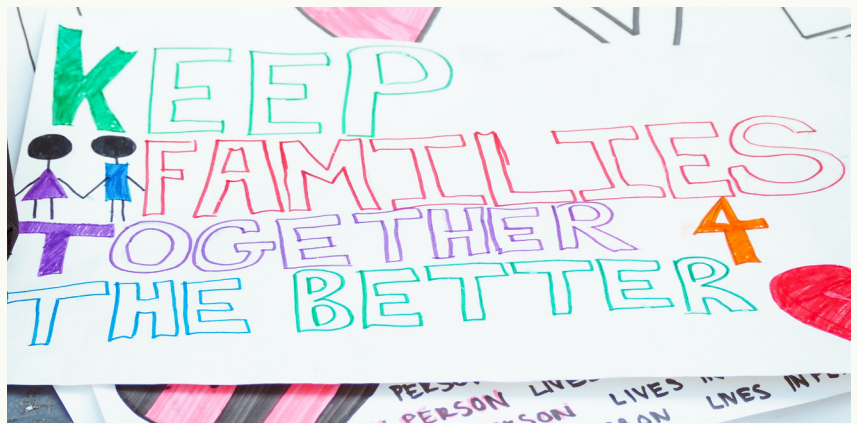 KEEP
FAMILIES
TOGETHER 4
THE BETTER
PERSON LIVES LIVES IN
PERSON PERSON LIVES IN